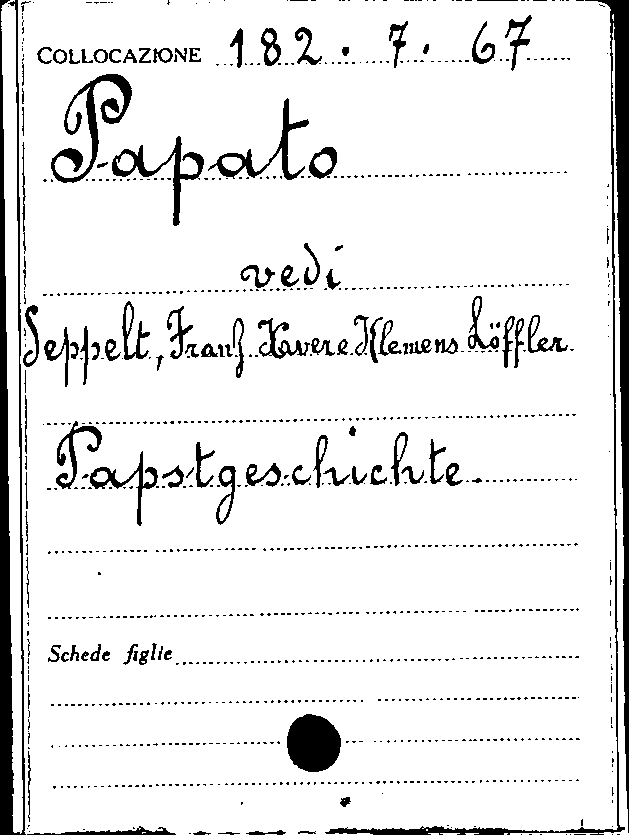 COLLOCAZIONE 182. 7. 67
Papato
vedi
Seppelt, Franz Xaver e Klemens Löffler
Papstgeschichte.
Schede figlie